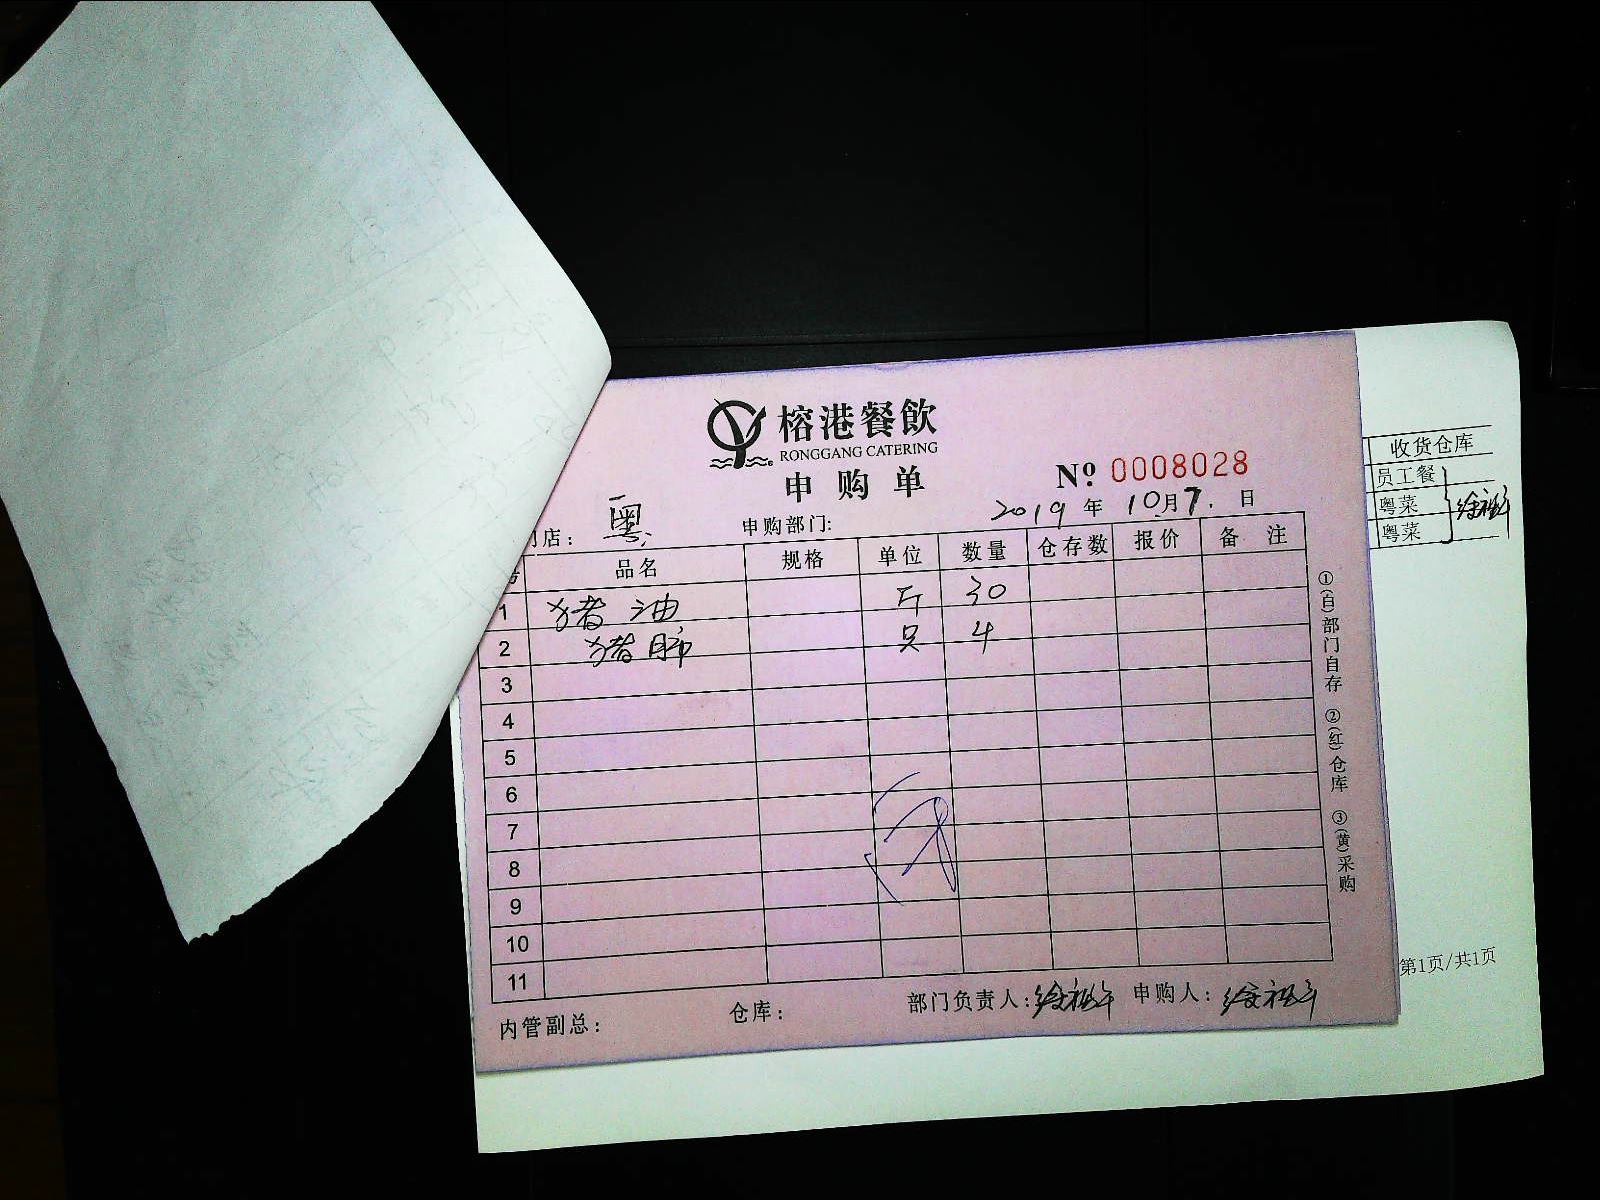 榕港餐飲
RONGGANG CATERING
申购单
Nº 0008028
2019年10月7.日
店: 粤 申购部门:
品名 规格 单位 数量 仓存数 报价 备 注
1 猪油 斤 30
2 猪肺 只 4
3
4
5
6
7
8
9
10
11
内管副总: 仓库: 部门负责人: 申购人:
①(白)部门自存 ②(红)仓库 ③(黄)采购
收货仓库
员工餐
粤菜
粤菜
第1页/共1页